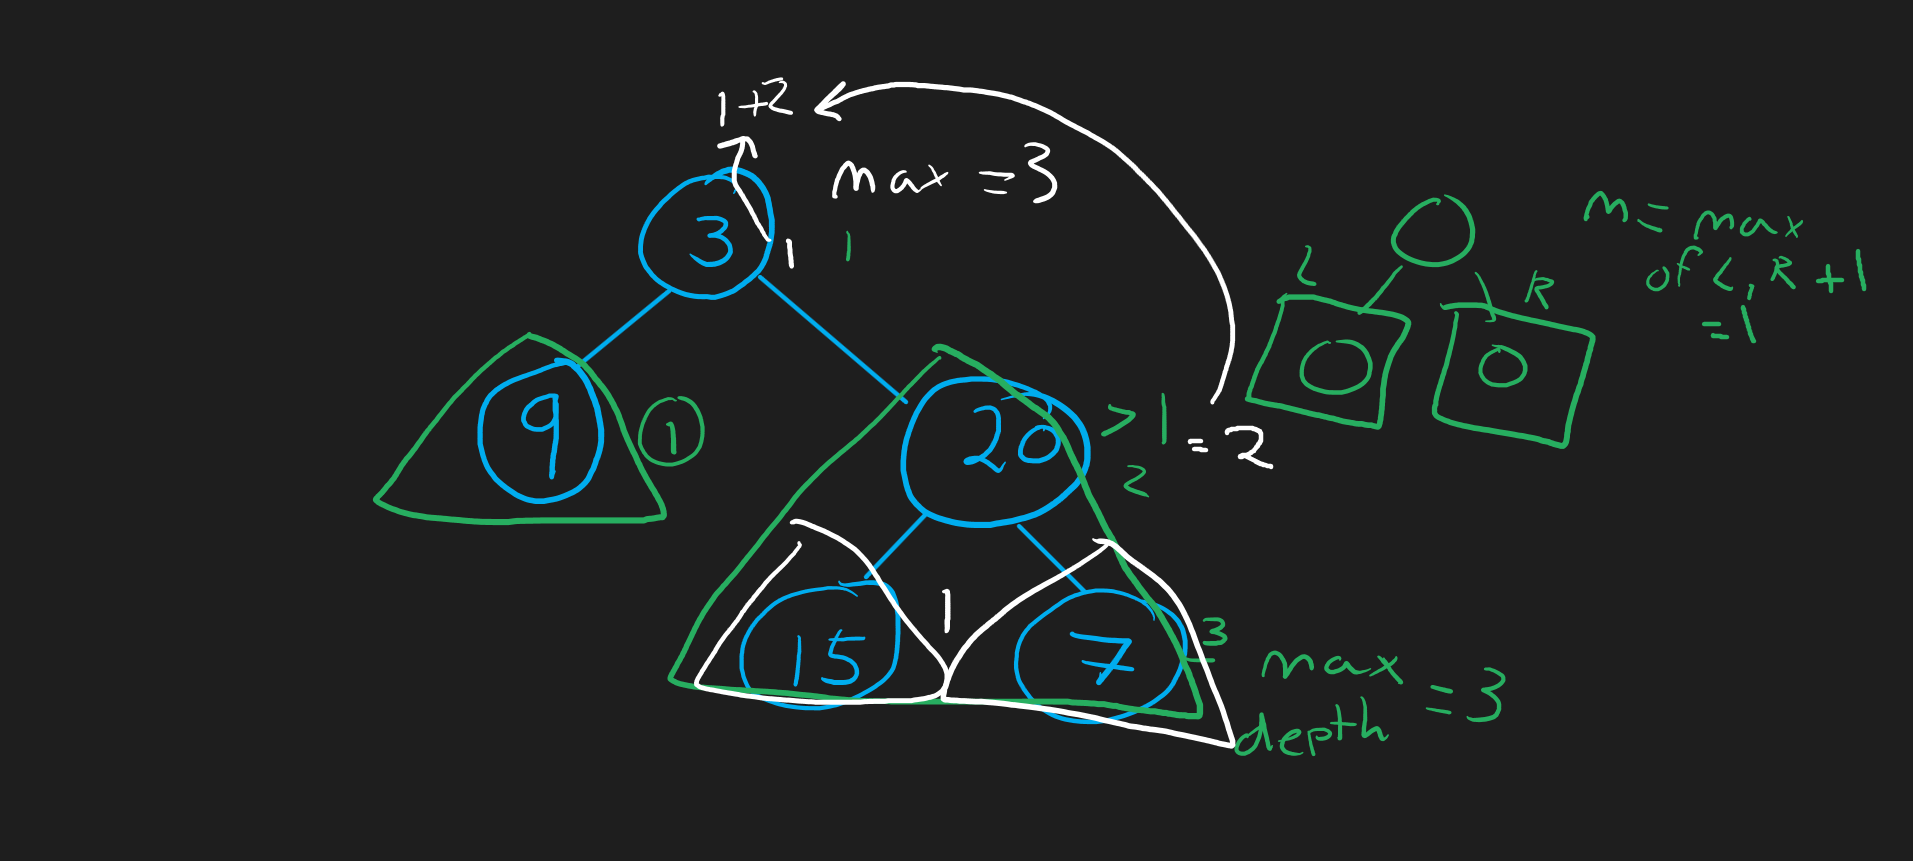 1+2
max = 3
3
1
1
9
1
20
> 1
= 2
2
15
1
7
3
max
depth = 3
L
R
m = max
of L, R + 1
= 1